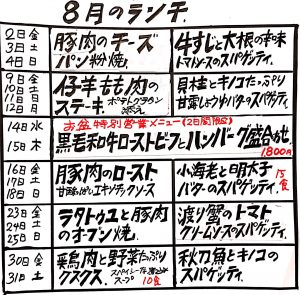 8月のランチ.
2日 金
3日 土
4日 日
豚肉のチーズ
パン粉焼.
牛すじと大根の辛味
トマトソースのスパゲティ.
9日 金
10日 土
11日 日
12日 月
仔羊もも肉の
ステーキ ポテトグラタン添え
貝柱とキノコたっぷり
甘露しょうゆバタのスパゲティ.
14日 水
15日 木
お盆特別営業メニュー(2日間限定)
黒毛和牛ローストビーフとハンバーグ盛合わせ
1800円
16日 金
17日 土
18日 日
豚肉のロースト
甘酸っぱいエキゾチックソース
小海老と明太子
バターのスパゲティ.
15食
23日 金
24日 土
25日 日
ラタトゥユと豚肉
のオーブン焼.
渡り蟹のトマト
クリームソースのスパゲティ.
30日 金
31日 土
鶏肉と野菜たっぷり
クスクス.
スープ 10食
秋刀魚とキノコの
スパゲティ.